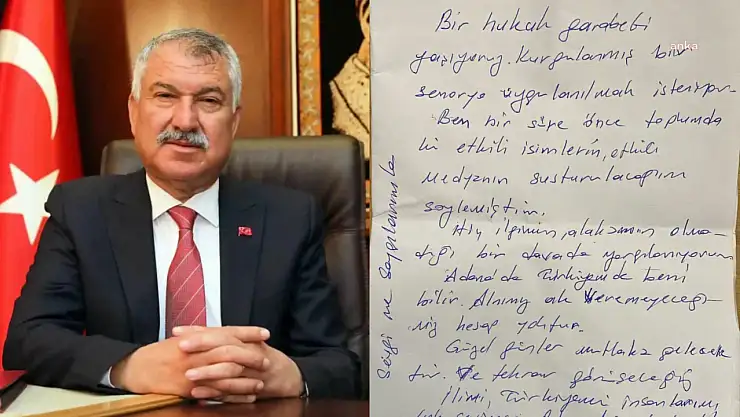 Bir hukuk garabeti
anka
yaşıyoruz. Kurgulanmış bir
senaryo uygulanılmak isteniyor
Ben bir süre önce toplumda
ki etkili isimlerin, etkili
medyanın susturulacağını
söylemiştim.
Hiç ilgimin, alakamın olma
dığı bir davada yargılanıyorum
Adana'da Türkiye'de beni
bilir. Alnımız ak veremeyeceği
miz hesap yoktur.
Güzel günler mutlaka gelecek
tir. Ve tekrar görüşeceğiz
Türkiyemi insanlarını
Sevgi ve Saygılarımla